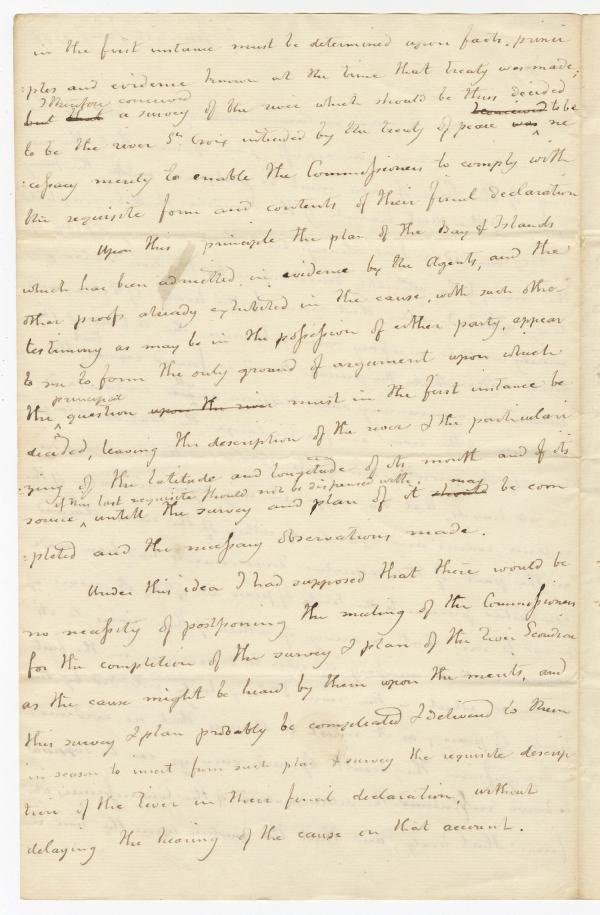 in the first instance must be determined upon facts, princi
:ples and evidence known at the time that treaty was made;
I therefore conceived
but that a survey of the river which should be thus decided
to be the river St. Croix intended by the treaty of peace was ne
:cessary merely to enable the Commissioners to comply with
the requisite form and contents of their final declaration
Upon this principle the plan of the Bay & Islands
which has been admitted in evidence by the Agents, and the
other proofs already exhibited in the cause, with such other
testimony as may be in the possession of either party, appear
to me to form the only ground of argument upon which
principal
the question upon the river must in the first instance be
decided, leaving the description of the river & the particulari
:zing of the latitude and longitude of its mouth and of its
if this last requisite should not be dispensed with may
source, untill the survey and plan of it should be com
:pleted and the necessary observations made.
Under this idea I had supposed that there would be
no necessity of postponing the meeting of the Commissioners
for the completion of the survey & plan of the River Scoudiac
as the cause might be heard by them upon the merits, and
this survey & plan probably be completed & delivered to them
in season to insert from such plan & survey the requisite descrip
tion of the River in their final declaration, without
delaying the hearing of the cause on that account.